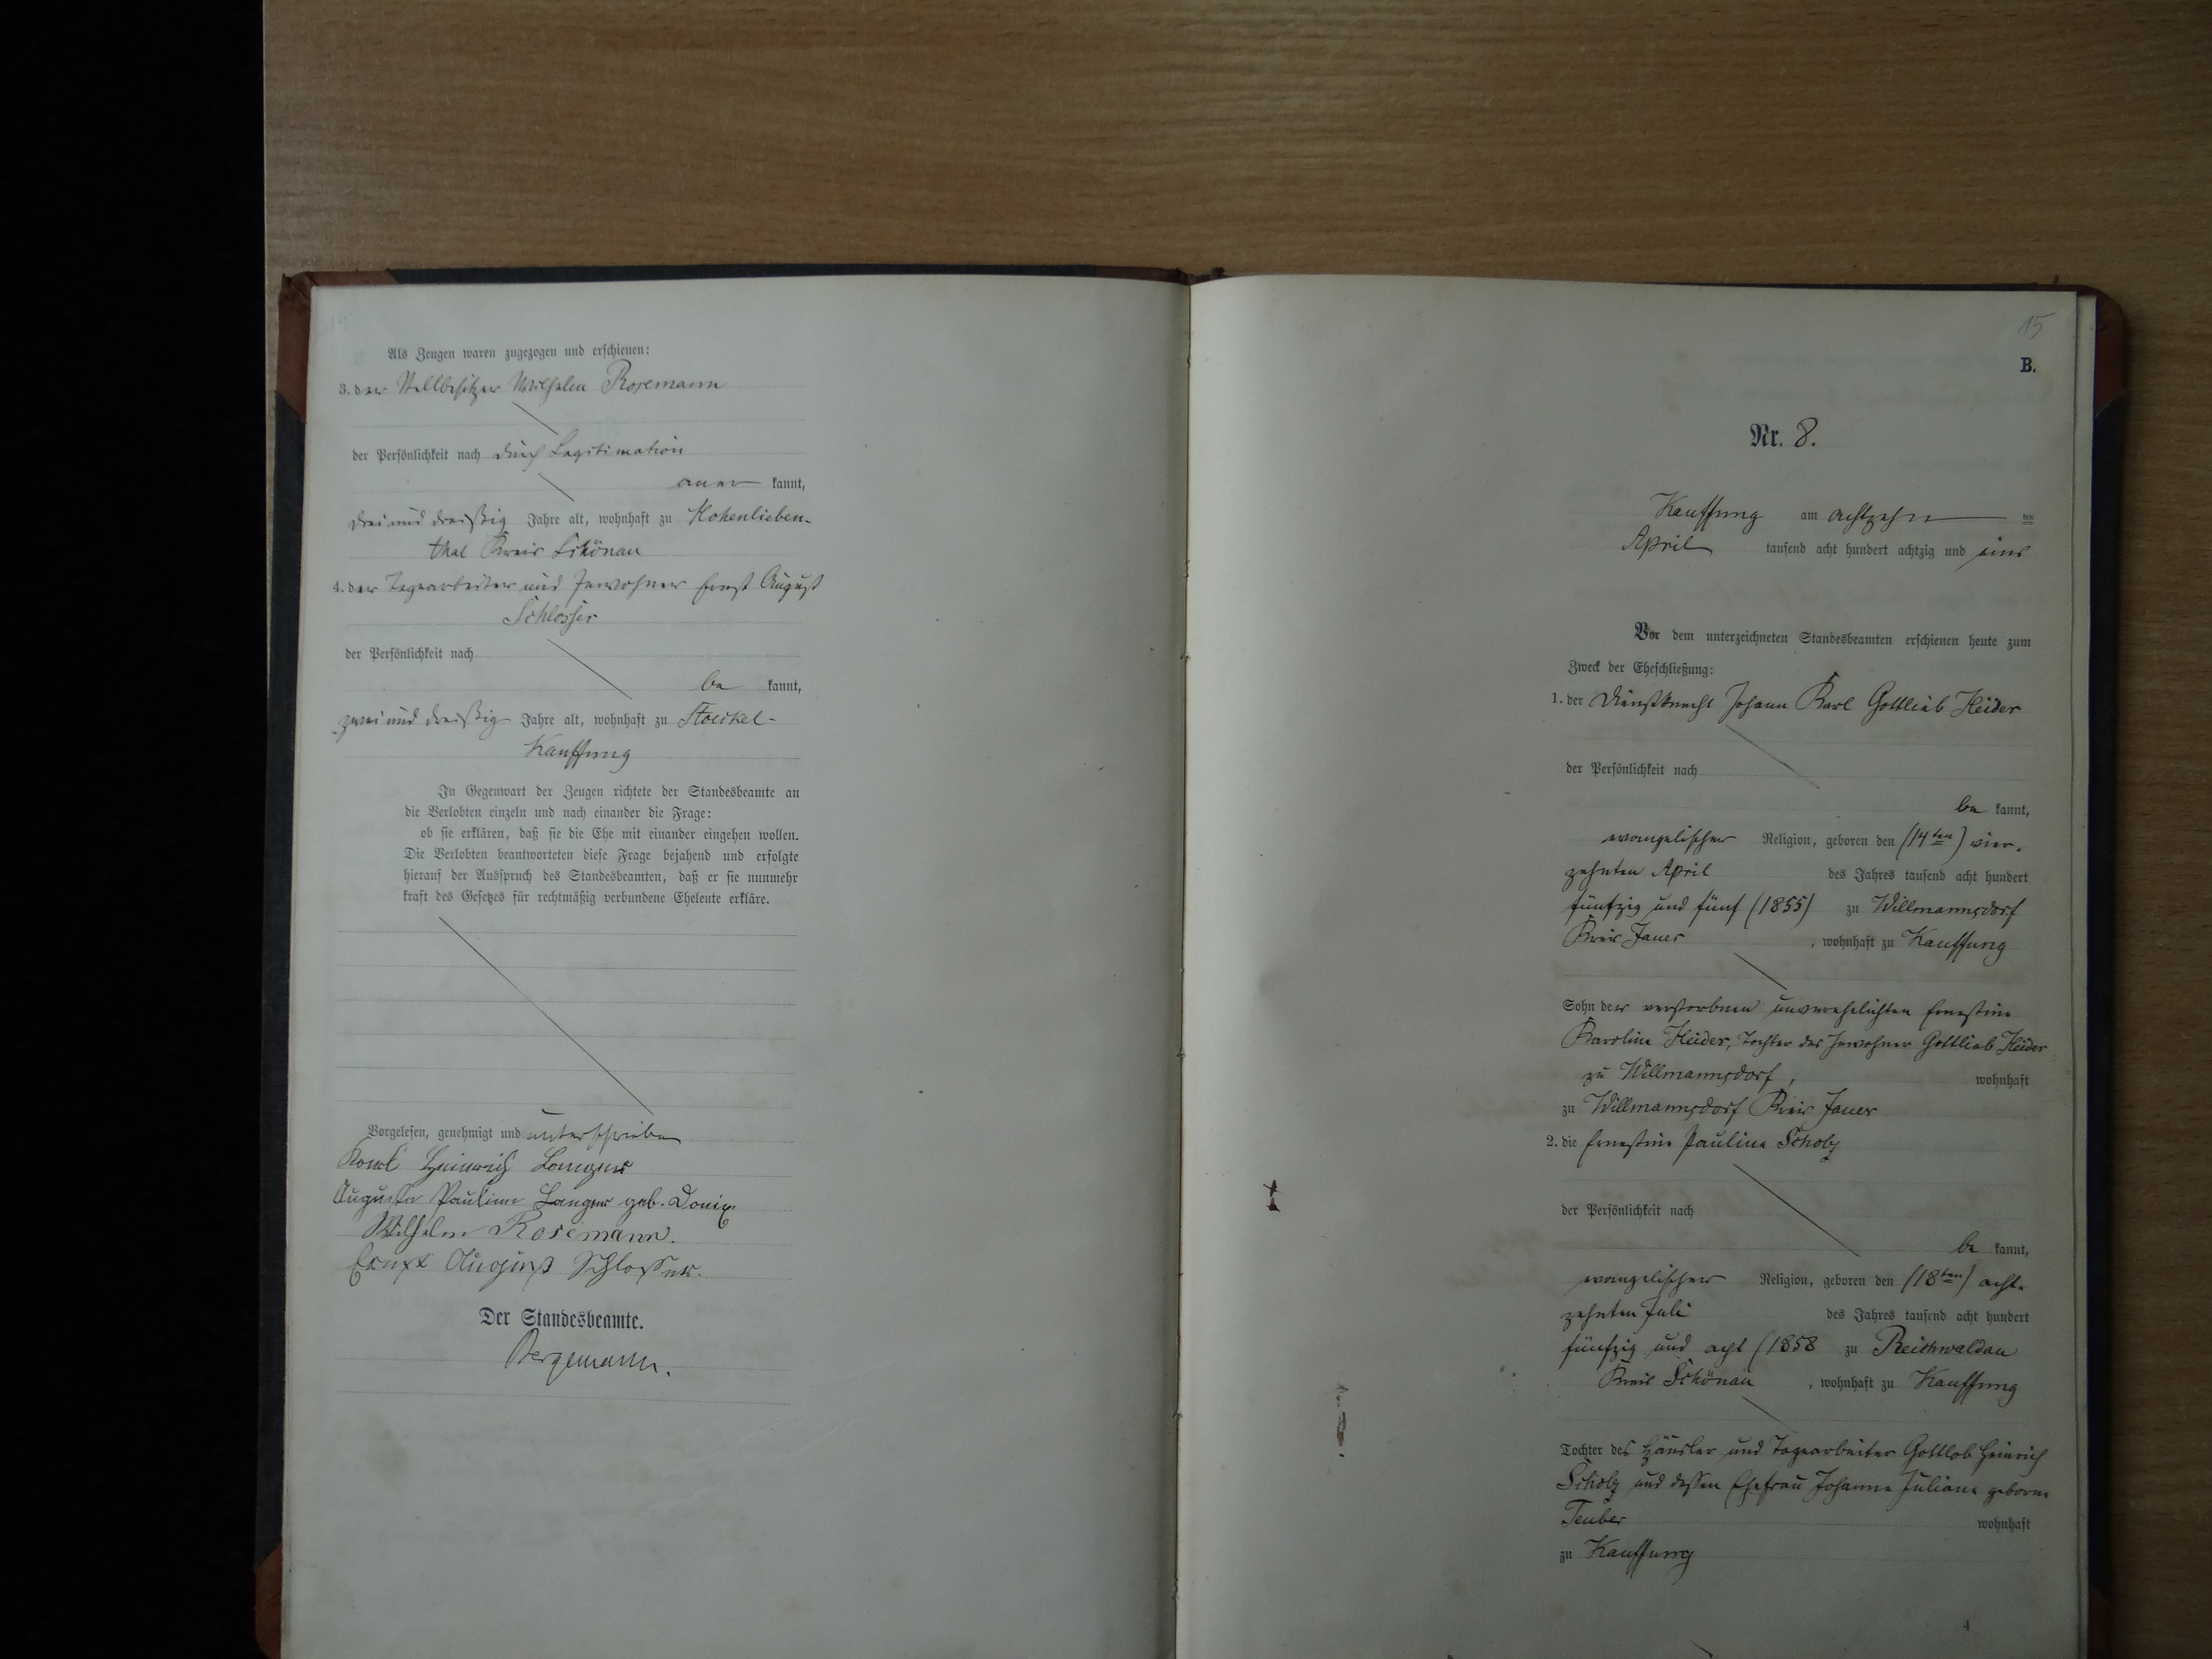 14
Als Zeugen waren zugezogen und erschienen:
3. der Stellbesitzer Wilhelm Rosemann
der Persönlichkeit nach durch Legitimation
aner kannt,
drei und dreißig Jahre alt, wohnhaft zu Hohenlieben-
thal Kreis Schönau
4. der Tagearbeiter und Inwohner Ernst August
Schlosser
der Persönlichkeit nach
be kannt,
zwei und dreißig Jahre alt, wohnhaft zu Stoeckel-
Kauffung
In Gegenwart der Zeugen richtete der Standesbeamte an
die Verlobten einzeln und nach einander die Frage:
ob sie erklären, daß sie die Ehe mit einander eingehen wollen.
Die Verlobten beantworteten diese Frage bejahend und erfolgte
hierauf der Ausspruch des Standesbeamten, daß er sie nunmehr
kraft des Gesetzes für rechtmäßig verbundene Eheleute erkläre.
Vorgelesen, genehmigt und unterschrieben
Karl Heinrich Langer
Auguste Pauline Langer geb.
Wilhelm Rosemann.
Ernst August Schlosser.
Der Standesbeamte.
Bergemann.
15
B.
Nr. 8.
Kauffung am achtzehn ten
April tausend acht hundert achtzig und eins
Vor dem unterzeichneten Standesbeamten erschienen heute zum
Zweck der Eheschließung:
1. der Dienstknecht Johann Karl Gottlieb Heider
der Persönlichkeit nach
be kannt,
evangelischer Religion, geboren den (14ten) vier-
zehnten April des Jahres tausend acht hundert
fünfzig und fünf (1855) zu Willmannsdorf
Kreis Jauer , wohnhaft zu Kauffung
Sohn der verstorbnen unverehelichten Ernestine
Karoline Heider, Tochter des Inwohner Gottlieb Heider
zu Willmannsdorf, wohnhaft
zu Willmannsdorf Kreis Jauer
2. die Ernestine Pauline Scholz
der Persönlichkeit nach
be kannt,
evangelischer Religion, geboren den (18ten) acht-
zehnten Juli des Jahres tausend acht hundert
fünfzig und acht (1858 zu Reichwaldau
Kreis Schönau , wohnhaft zu Kauffung
Tochter des Häusler und Tagearbeiter Gottlob Heinrich
Scholz und dessen Ehefrau Johanne Juliane geborne
Teuber wohnhaft
zu Kauffung
4